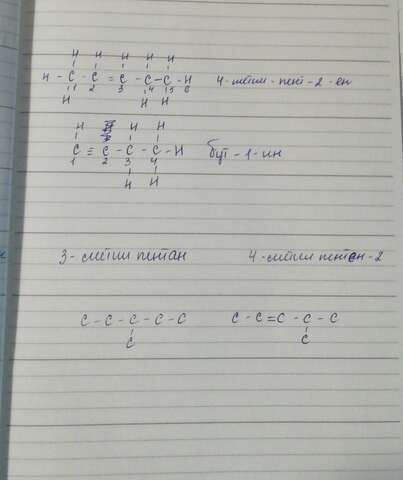 H H H H H
H - C - C = C - C - C - H 4-метил-пент-2-ен
1 2 3 4 5 6
H H H
H H H
C ≡ C - C - C - H бут-1-ин
1 2 3 4
H H
3-метил пентан 4-метил пентен-2
C - C - C - C - C C - C = C - C - C
C C